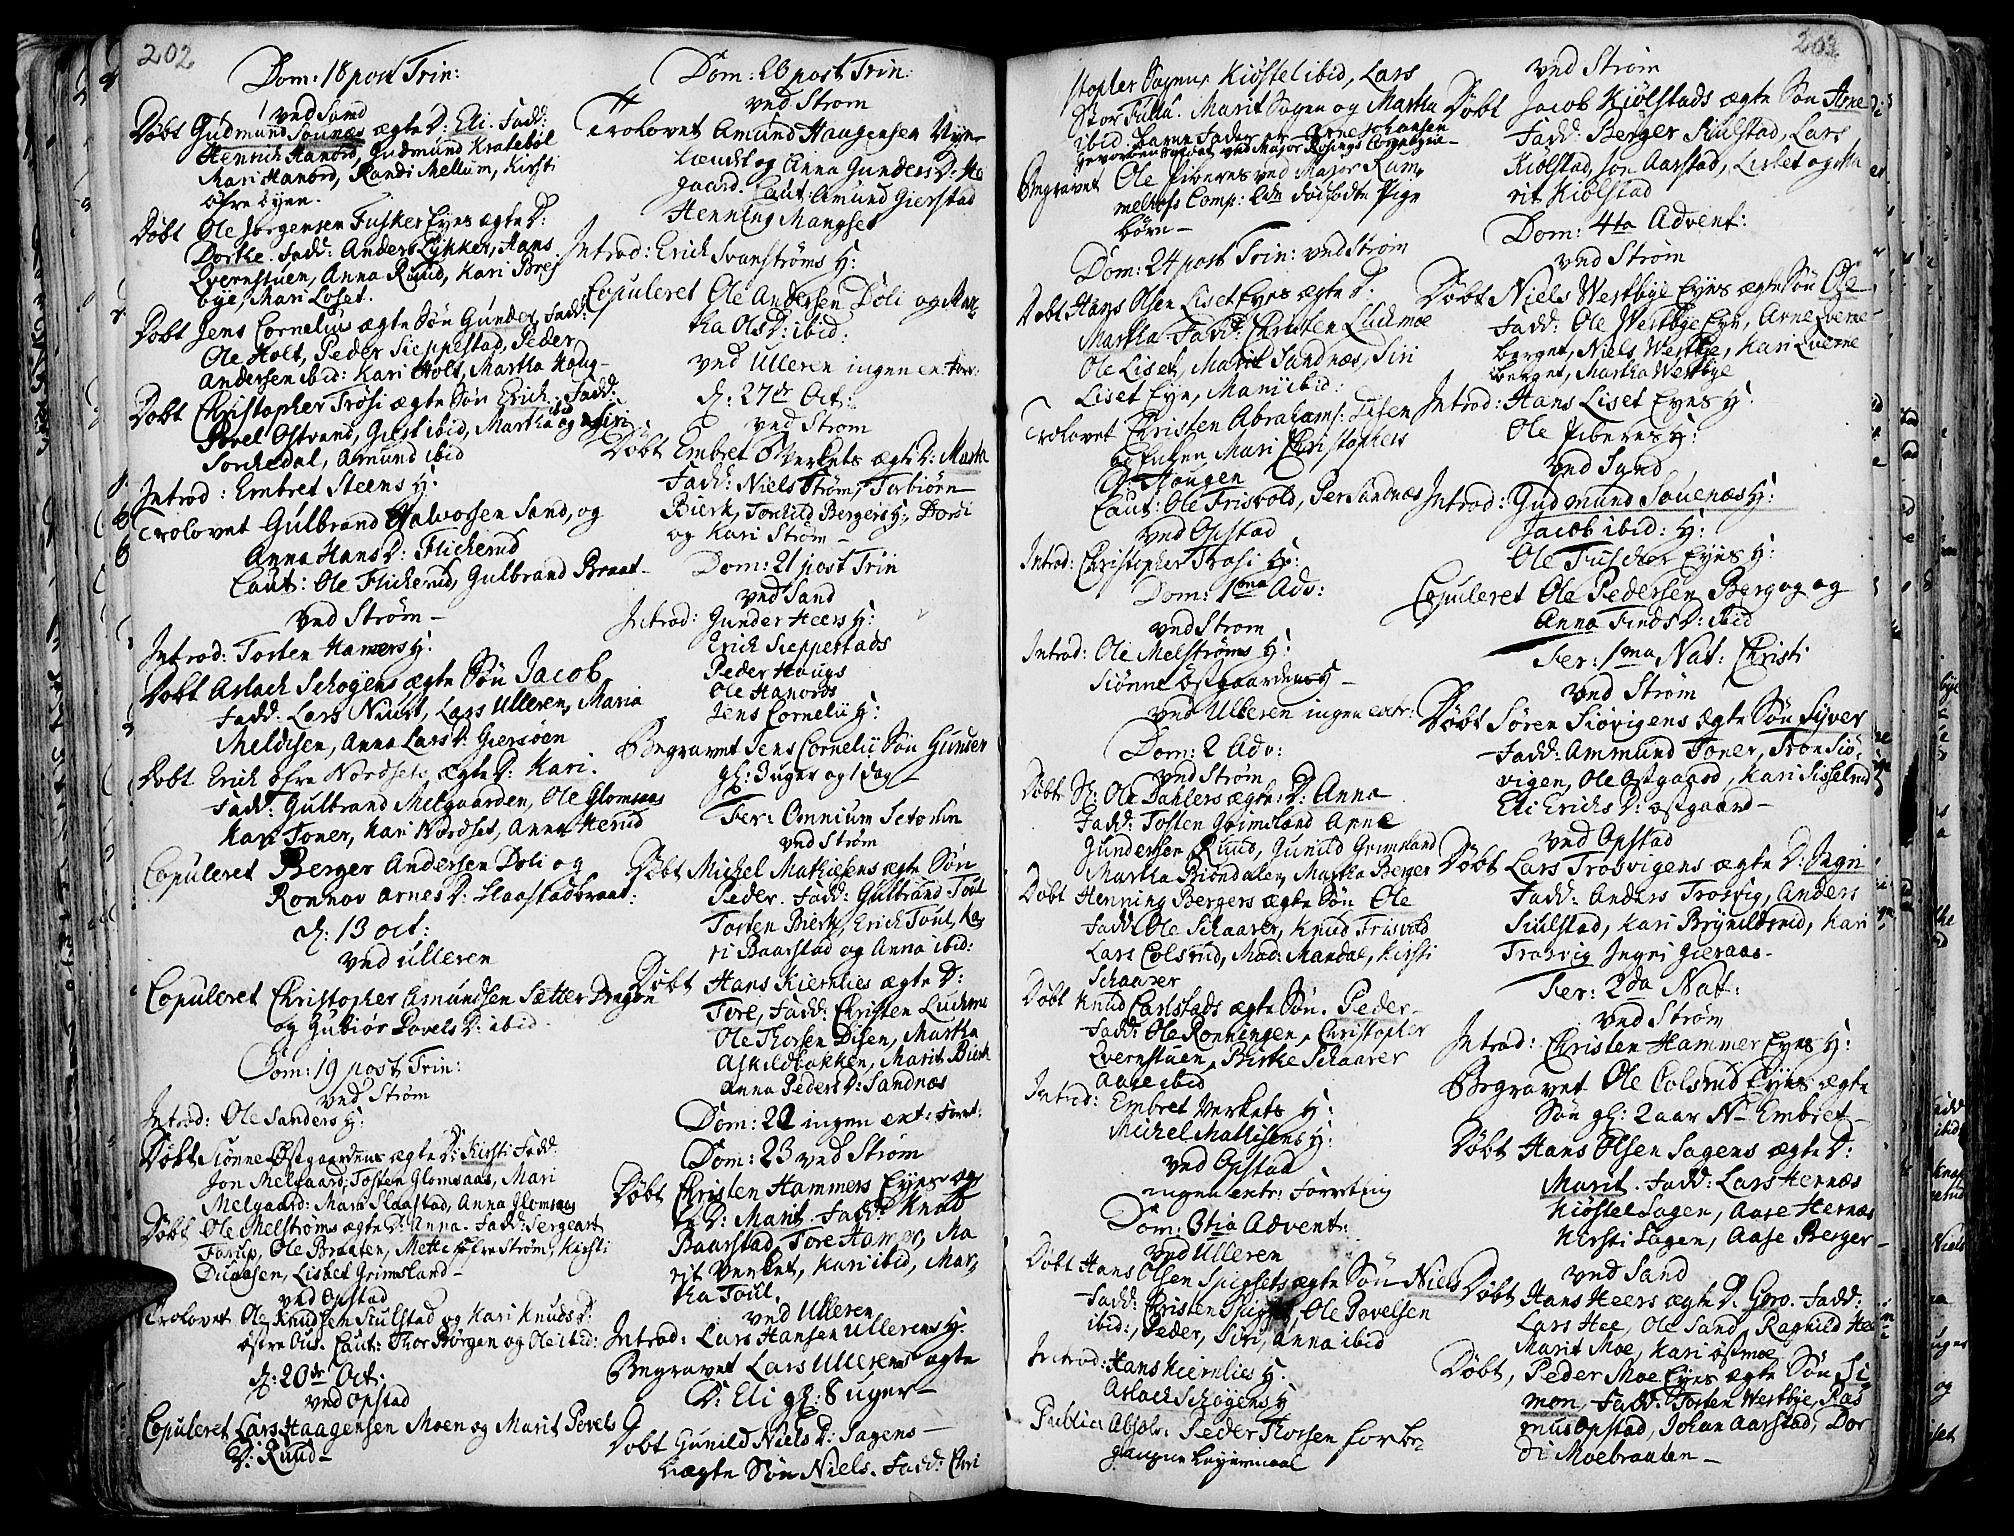 202
Dom: 18 post Trin:
ved Sand
Døbt Gudmund Søunæs ægte D: Eli. Fadd:
Henrich Hanord, Gudmund Kratebøl
Mari Hanord, Randi Mellum, Kirsti
øfre Eyen.
Døbt Ole Jørgensen Fusker Eyes ægte D:
Dortke. Fadd: Anders Lykker, Hans
Qvernstuen, Anna Ruud, Kari Bres
bye, Mari Løset.
Døbt Jens Cornelius ægte Søn Gunder, Fadd:
Ole Holt, Peder Sieppestad, Peder
Andersen ibid: Kari Holt, Martha Houg
Døbt Christopher Trosi ægte Søn Erich. Fadd:
Povel Ostrand, Giest ibid, Martha ibid og Siri
Sonkedal, Amund ibid
Introd: Embret Steens H:
Trolovet Gulbrand Halvorsen Sand, og
Anna Hans D: Flickerud
Caut: Ole Flickerud, Gulbrand Braat
ved Strøm
Introd: Torsten Hamers H:
Døbt Aslach Schøgens ægte Søn Jacob
Fadd: Lars Nuurt, Lars Ulleren, Maria
Meldisen, Anna Lars D: Giersøen
Døbt Erich øfre Nordsets ægte D: Kari.
Fadd: Gulbrand Melgaarden, Ole Glomsaas
Kari Toner, Kari Nordset, Anna Herud
Copuleret Berger Andersen Doli og
Ronnov Arnes D: Slaastadbraat:
d: 13 oct:
ved Ulleren
Copuleret Christopher Amundsen Sætter Dragon
og Gubiør Povels D: ibid
Dom: 19 post Trin:
ved Strøm
Introd: Ole Sanders H:
Døbt Siønne Østgaardens ægte D: Kirsti Fadd:
Jon Melgaard, Tosten Glomsaas, Mari
Melgaard: Mari Slaastad, Anna Glomsaas
Døbt Ole Melstrøms ægte D: Anna. Fadd: Sergeant
Forup, Ole Braaten, Mette øfre Strøm, Kirsti
Duaasen, Lisbet Grimsland
ved Opstad
Trolovet Ole Knudsen Siulstad og Kari Knuds D:
østre Ous. Caut: Thor Børgen og Ole ibid:
d: 20de Oct:
ved Opstad
Copuleret Lars Haagensen Moen og Marit Povels
D: Ruud
Dom: 20 post Trin:
ved Strøm
Trolovet Amund Haagensen Nyn
Lændt og Anna Gunders D: Ho
gaard. Caut: Amund Gierstad
Henning Mangset
Introd: Erich Svanstrøms H:
Copuleret Ole Andersen Doli og Mar
tha Ols D: ibid:
ved Ulleren ingen en. forr:
d: 27de Oct:
ved Strøm
Døbt Embret Verkets ægte D: Marta
Fadd: Niels Strøm, Torbiørn
Bierk, Tonhild Bergers H:, Dordi
og Kari Strøm
Dom: 21 post Trin
ved Sand
Introd: Gunder Heers H:
Erich Sieppestads
Peder Hougs
Ole Hanords
Jens Cornelii H:
Begravet Jens Cornelii Søn Gunder
gl: 3 uger og 1 dag
Fer: Omnium Sctorum
ved Strøm
Døbt Michel Mathiesens ægte Søn
Peder. Fadd: Gulbrand Toul
Torsten Bierk, Erich Toul, Ka
ri Baarstad og Anna ibid:
Døbt Hans Kiernlies ægte D:
Tore, Fadd: Christen Luchmo
Ole Thorsen Disen, Martha
Askildbakken, Marit Bierk
Anna Peders D: Sandnæs
Dom: 22 ingen ext: Forret:
Dom: 23 ved Strøm
Døbt Christen Hammers Eyes æg
te D: Marit. Fadd: Knud
Baarstad, Tore Hamer, Ma
rit Verket, Kari ibid, Mar
tha Toul.
ved Ulleren
Introd: Lars Hansen Ullerens H:
Begravet Lars Ullerens ægte
D: Eli gl: 8 uger
Døbt Gunild Niels D: Sagens
uægte Søn Niels. Fadd: Chri
203
stopher Sagen, Kiøstel ibid, Lars
Stor Tullu. Marit Sagen og Martha
ibid. Barne Fader er Arne Johansen
gevorben Soldat ved Major Rosings Compagnie
Begravet Ole Fiberes ved Major Rum
melhofs Comp: 2de dødfødte Pige
børn
Dom: 24 post Trin: ved Strøm
Døbt Hans Olsen Liset Eyes ægte D.
Martha Fadd: Christen Luchmoe
Ole Liset, Marit Sandnæs, Siri
Liset Eye, Mari ibid:
Trolovet Christen Abrahams: Disen
og Enken Mari Christophers
D: Hougen
Caut: Ole Frisvold, Per Sandnæs
ved Opstad
Introd: Christopher Trosi H:
Dom: 1ma Adv:
ved Strøm
Introd: Ole Melstrøms H:
Siønne Østgaardens H
ved Ulleren ingen extr:
Dom: 2 Adv:
ved Strøm
Døbt Sl: Ole Dahlers ægte D: Anna
Fadd: Tosten Grimsland Arne
Gundersen Ruud, Gunild Grimsland
Martha Biøndalen, Martha Berger
Døbt Henning Bergers ægte Søn Ole
Fadd: Ole Schaarer, Knud Frisvold
Lars Colsrud, Mad: Mandal, Kirsti
Schaarer
Døbt Knud Carlstads ægte Søn. Peder
Fadd: Ole Rønningen, Christopher
Qvernstuen, Birtke Schaarer
Aase ibid
Introd: Embret Verkets H:
Michel Mathisens H:
ved Opstad
ingen extr: Forretning
Dom: 3tia Advent:
ved Ulleren
Døbt Hans Olsen Spigsets ægte Søn Niels
Fadd: Christen Spigset, Ole Povelsen
ibid:, Peder, Siri, Anna ibid
Introd: Hans Kiernlies H.
Aslach Schøgens H
Public: Absolv: Peder Thorsen for be
gangne Leyermaal
ved Strøm
Døbt Jacob Kiølstads ægte Søn Arne
Fadd: Berger Siulstad, Lars
Kiølstad, Jon Aarstad, Lisbet og Ma
rit Kiølstad
Dom: 4ta Advent:
ved Strøm
Døbt Niels Westbye Eyes ægte Søn Ole
Fadd: Ole Westbye Eye, Arne Qverne
berget, Niels Westbye, Kari Qverne
berget, Martha Westbye
Introd: Hans Liset Eyes H:
Ole Fiberes H:
ved Sand
Introd: Gudmund Souenæs H:
Jacob ibid: H:
Ole Fuscher Eyes H:
Copuleret Ole Pedersen Berg og
Anna Finds D: ibid
Fer: 1ma Nat: Christi
ved Strøm
Døbt Søren Siøvigens ægte Søn Syver
Fadd: Ammund Toner, Tron Siø
vigen, Ole Østgaard, Kari Sisselrud
Eli Erichs D: Østgaard
ved Opstad
Døbt Lars Trosvigens ægte D: Ingri
Fadd: Anders Trosvig, Anders
Siulstad, Kari Brynildsrud, Kari
Trosvig Ingri Gieraas
Fer: 2da Nat:
ved Strøm
Introd: Christen Hammer Eyes H:
Begravet Ole Colsrud Eyes ægte
Søn gl: 2 aar N: Embret
Døbt Hans Olsen Sagens ægte D:
Marit. Fadd: Lars Hernæs
Kiøstel Sagen, Aase Hernæs
Kirsti Sagen, Aase Berger
ved Sand
Døbt Hans Heers ægte D: Goro. Fadd:
Lars Hee, Ole Sand, Ragnild Hee
Marit Moe, Kari Østmoe
Døbt, Peder Moe Eyes ægte Søn Si
mon, Fadd: Torsten Westbye, Ras
mus Opstad, Johan Aarstad, Dor
di Moebraaten